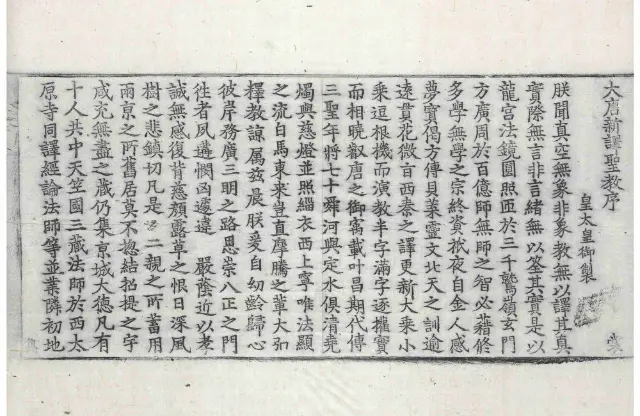 大唐新譯聖教序
皇太皇御製
朕聞真空無象非象教無以譯其真
實際無言非言緒無以筌其實是以
龍宮法鏡圓照匝於三千鷲嶺玄門
方廣周於百億師無師之智必藉修
多學無學之宗終資祇夜自金人感
夢寶偈方傳貝葉靈文北天之訓逾
遠貫花微旨西秦之譯更新大乘小
乘逗根機而演教半字滿字逐權實
而相曉叡唐之御寓載叶昌期代傳
三聖年將七十舜河與定水俱清堯
燭與慈燈並照緇衣西上寧唯法顯
之流白馬東來豈直摩騰之輩大弘
釋教諒属茲晨朕爰自幼齡歸心
彼岸務廣三明之路思崇八正之門
往者夙遘憫凶遽違 嚴蔭近以孝
誠無感復背慈顏露草之恨日深風
樹之悲鎮切凡是 二親之所蓄用
兩京之所舊居莫不惣結招提之宇
咸充無盡之藏仍集京城大德凡有
十人共中天竺國三藏法師於西太
原寺同譯經論法師等並業隣初地